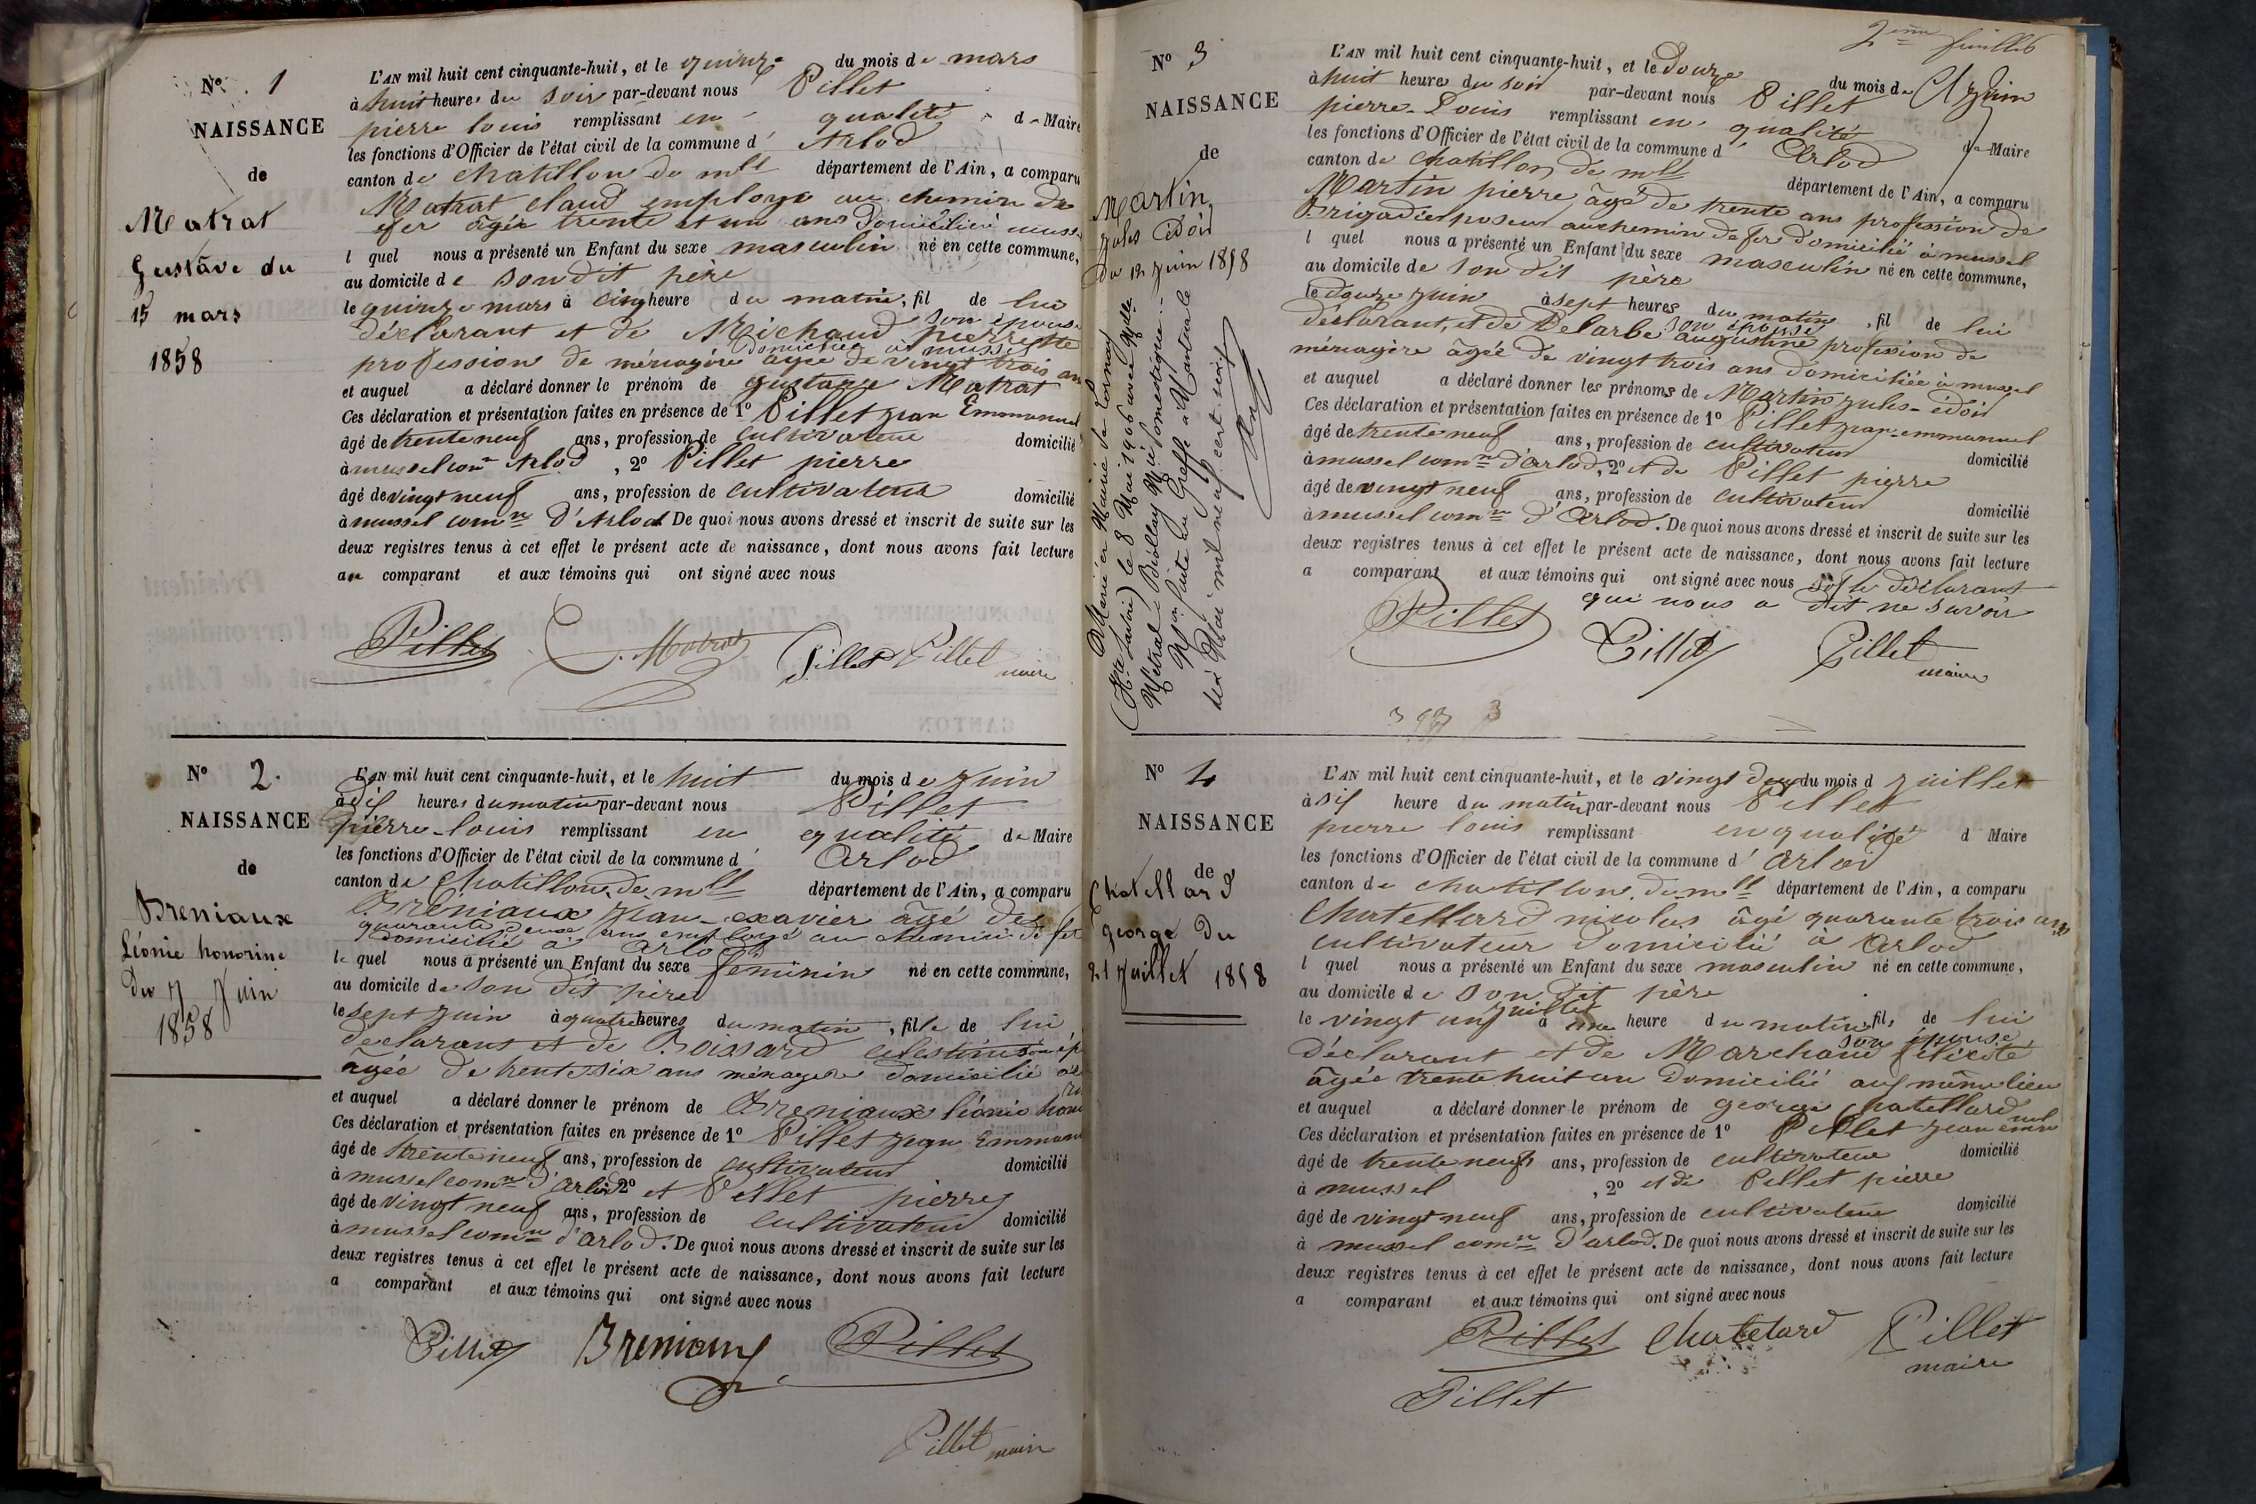 N° 1
NAISSANCE
de
Matrat
Gustave du
15 mars
1858
L'AN mil huit cent cinquante-huit, et le quinze du mois de mars
à huit heures du soir par-devant nous Pillet
pierre louis remplissant en qualité de Maire
les fonctions d'Officier de l'état civil de la commune d' Arlod
canton de chatillon de mlle département de l'Ain, a comparu
Matrat claud employé au chemin de
fer âgée trente et un ans domicilié
l quel nous a présenté un Enfant du sexe masculin né en cette commune,
au domicile de son dit père
le quinze mars à cinq heure du matin, fil de lui
déclarant et de Michaud pierrette son épouse
profession de ménagère domiciliée à mussel âgée de vingt trois ans
et auquel a déclaré donner le prénom de gustave Matrat
Ces déclaration et présentation faites en présence de 1° Pillet jean Emmanuel
âgé de trente neuf ans, profession de cultivateur domicilié
à mussel comne Arlod, 2° Pillet pierre
âgé de vingt neuf ans, profession de cultivateur domicilié
à mussel comne D'Arlod De quoi nous avons dressé et inscrit de suite sur les
deux registres tenus à cet effet le présent acte de naissance, dont nous avons fait lecture
au comparant et aux témoins qui ont signé avec nous
Pillet C. Matrat Pillet Pillet
maire
N° 2.
NAISSANCE
de
Breniaux
Léonie honorine
Du 7 Juin
1858
L'AN mil huit cent cinquante-huit, et le huit du mois de juin
à dix heures du matin par-devant nous Pillet
pierre-louis remplissant en qualité de Maire
les fonctions d'Officier de l'état civil de la commune d' Arlod
canton de Chatillon de mlle département de l'Ain, a comparu
Bréniaux jean-exavier âgé de
quarante deux ans employé au chemin de fer
domicilié à Arlod
le quel nous a présenté un Enfant du sexe feminin né en cette commune,
au domicile de son dit père
le sept juin à quatre heures du matin, fille de lui
declarant et de Boissard celestine
âgée de trente six ans ménagère domicilié
et auquel a déclaré donner le prénom de Breniaux léonie
Ces déclaration et présentation faites en présence de 1° Pillet jean Emmanuel
âgé de trente neuf ans, profession de cultivateur domicilié
à mussel comne d'arlod 2° et Pillet pierre
âgé de vingt neuf ans, profession de cultivateur domicilié
à mussel comne d'Arlod. De quoi nous avons dressé et inscrit de suite sur les
deux registres tenus à cet effet le présent acte de naissance, dont nous avons fait lecture
a comparant et aux témoins qui ont signé avec nous
Pillet Breniaux Pillet
Pillet maire
2ème feuillet
N° 3
NAISSANCE
de
Martin,
jules édoir
Du 12 Juin 1858
Marié en Mairie de Lornay
(Hte Savoie) le 8 Mai 1906 avec Melle
Métral Biollay
Non faite au Greffe à Nantua le
dix Mai mil neuf cent six
L'AN mil huit cent cinquante-huit, et le Douze du mois de Juin
à huit heures du soir par-devant nous Pillet
pierre-Louis remplissant en qualité de Maire
les fonctions d'Officier de l'état civil de la commune d' Arlod
canton de chatillon de mlle département de l'Ain, a comparu
Martin pierre, âgé de trente ans profession de
Brigadier poseur au chemin de fer domicilié à mussel
l quel nous a présenté un Enfant du sexe masculin né en cette commune,
au domicile de son dit père
le douze juin à sept heures du matin, fil de lui
déclarant, et de Delarbe augustine son épouse profession de
ménagère âgée de vingt trois ans domiciliée à mussel
et auquel a déclaré donner les prénoms de Martin jules-édoir
Ces déclaration et présentation faites en présence de 1° Pillet jean-emmanuel
âgé de trente neuf ans, profession de cultivateur domicilié
à mussel comne d'arlod, 2° et de Pillet pierre
âgé de vingt neuf ans, profession de cultivateur domicilié
à mussel comne d'Arlod. De quoi nous avons dressé et inscrit de suite sur les
deux registres tenus à cet effet le présent acte de naissance, dont nous avons fait lecture
a comparant et aux témoins qui ont signé avec nous le déclarant
qui nous a dit ne savoir
Pillet Pillet Pillet
maire
N° 4
NAISSANCE
de
Chatellard
george Du
21 Juillet 1858
L'AN mil huit cent cinquante-huit, et le vingt deux du mois d juillet
à six heure du matin par-devant nous Pillet
pierre louis remplissant en qualité d Maire
les fonctions d'Officier de l'état civil de la commune d' arlod
canton de chatillon de mlle département de l'Ain, a comparu
Chatellard nicolas âgé quarante trois ans
cultivateur domicilié à Arlod
l quel nous a présenté un Enfant du sexe masculin né en cette commune,
au domicile de son dit père
le vingt un juillet à une heure du matin, fils de lui
déclarant et de Marchand félicité son épouse
âgée trente huit an domicilié au même lieu
et auquel a déclaré donner le prénom de george Chatellard
Ces déclaration et présentation faites en présence de 1° Pillet jean
âgé de trente neuf ans, profession de cultivateur domicilié
à mussel, 2° et de Pillet pierre
âgé de vingt neuf ans, profession de cultivateur domicilié
à mussel comne d'arlod. De quoi nous avons dressé et inscrit de suite sur les
deux registres tenus à cet effet le présent acte de naissance, dont nous avons fait lecture
a comparant et aux témoins qui ont signé avec nous
Pillet Chatelard Pillet
maire
Pillet